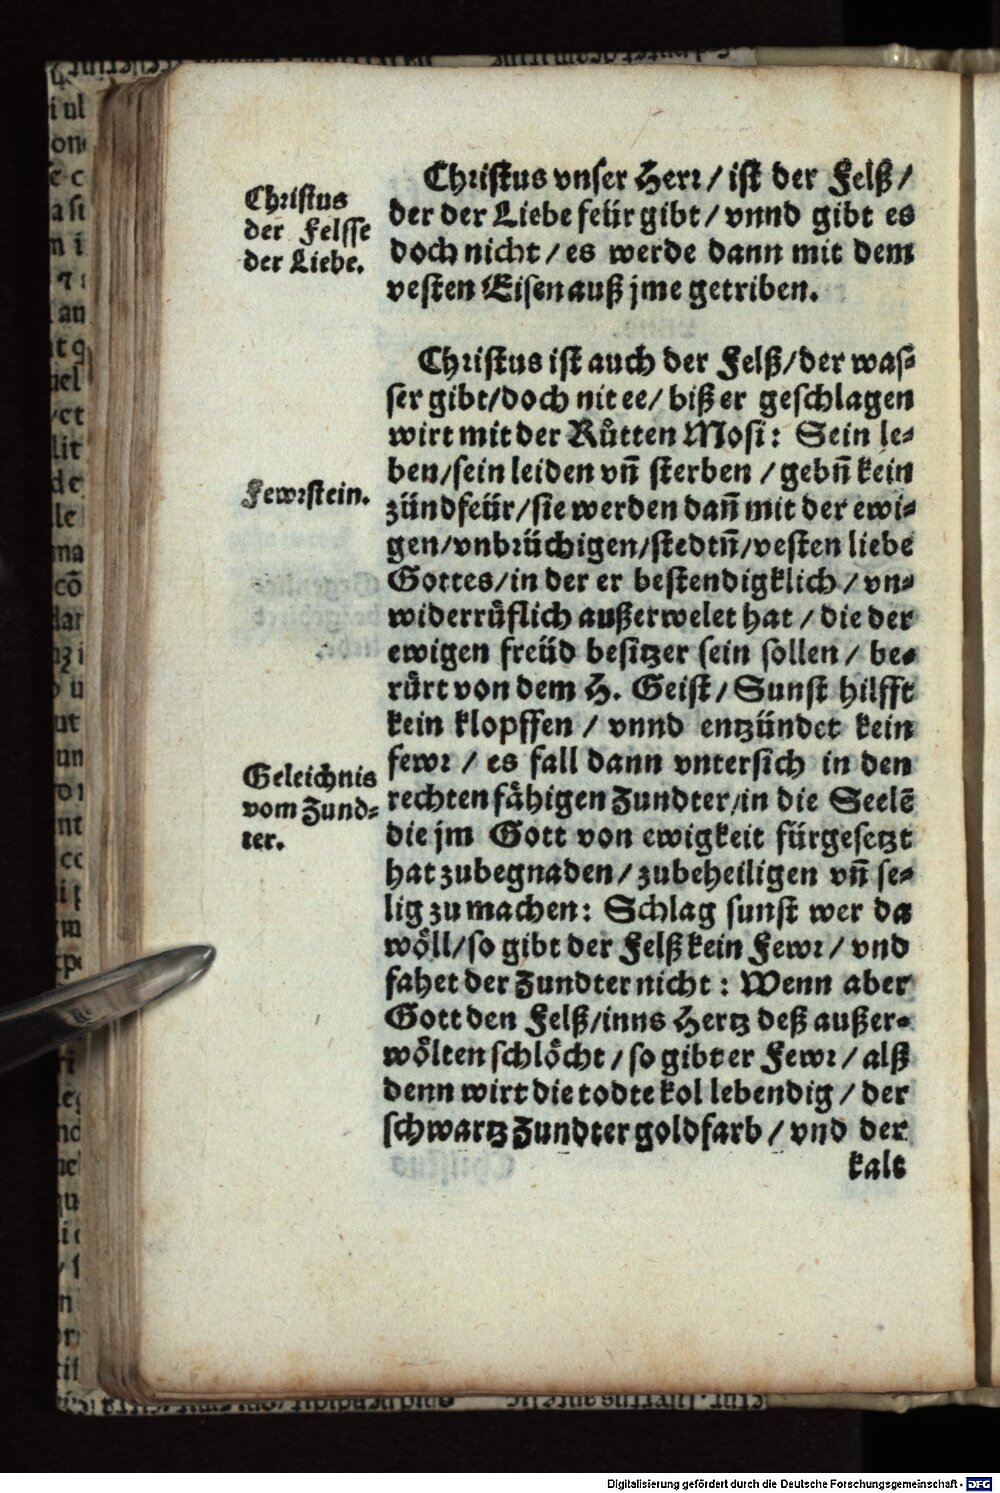 Christus
der Felsse
der Liebe.
Christus vnser Herr / ist der Felß /
der der Liebe feür gibt / vnnd gibt es
doch nicht / es werde dann mit dem
vesten Eisen auß jme getriben.
Christus ist auch der Felß / der was⸗
ser gibt / doch nit ee / biß er geschlagen
wirt mit der Růtten Mosi: Sein le⸗
ben / sein leiden vn̄ sterben / gebn̄ kein
Fewrstein.
zündfeür / sie werden dan̄ mit der ewi⸗
gen / vnbrüchigen / stedtn̄ / vesten liebe
Gottes / in der er bestendigklich / vn⸗
widerrůflich außerwelet hat / die der
ewigen freüd besitzer sein sollen / be⸗
rürt von dem H. Geist / Sunst hilfft
kein klopffen / vnnd entzündet kein
fewr / es fall dann vntersich in den
Geleichnis
vom Zund⸗
ter.
rechten fåhigen Zundter / in die Seelē
die jm Gott von ewigkeit fürgesetzt
hat zubegnaden / zubeheiligen vn̄ se⸗
lig zu machen: Schlag sunst wer da
wöll / so gibt der Felß kein Fewr / vnd
fahet der Zundter nicht: Wenn aber
Gott den Felß / inns Hertz deß außer⸗
wölten schlöcht / so gibt er Fewr / alß
denn wirt die todte kol lebendig / der
schwartz Zundter goldfarb / vnd der
kalt
Digitalisierung gefördert durch die Deutsche Forschungsgemeinschaft - DFG